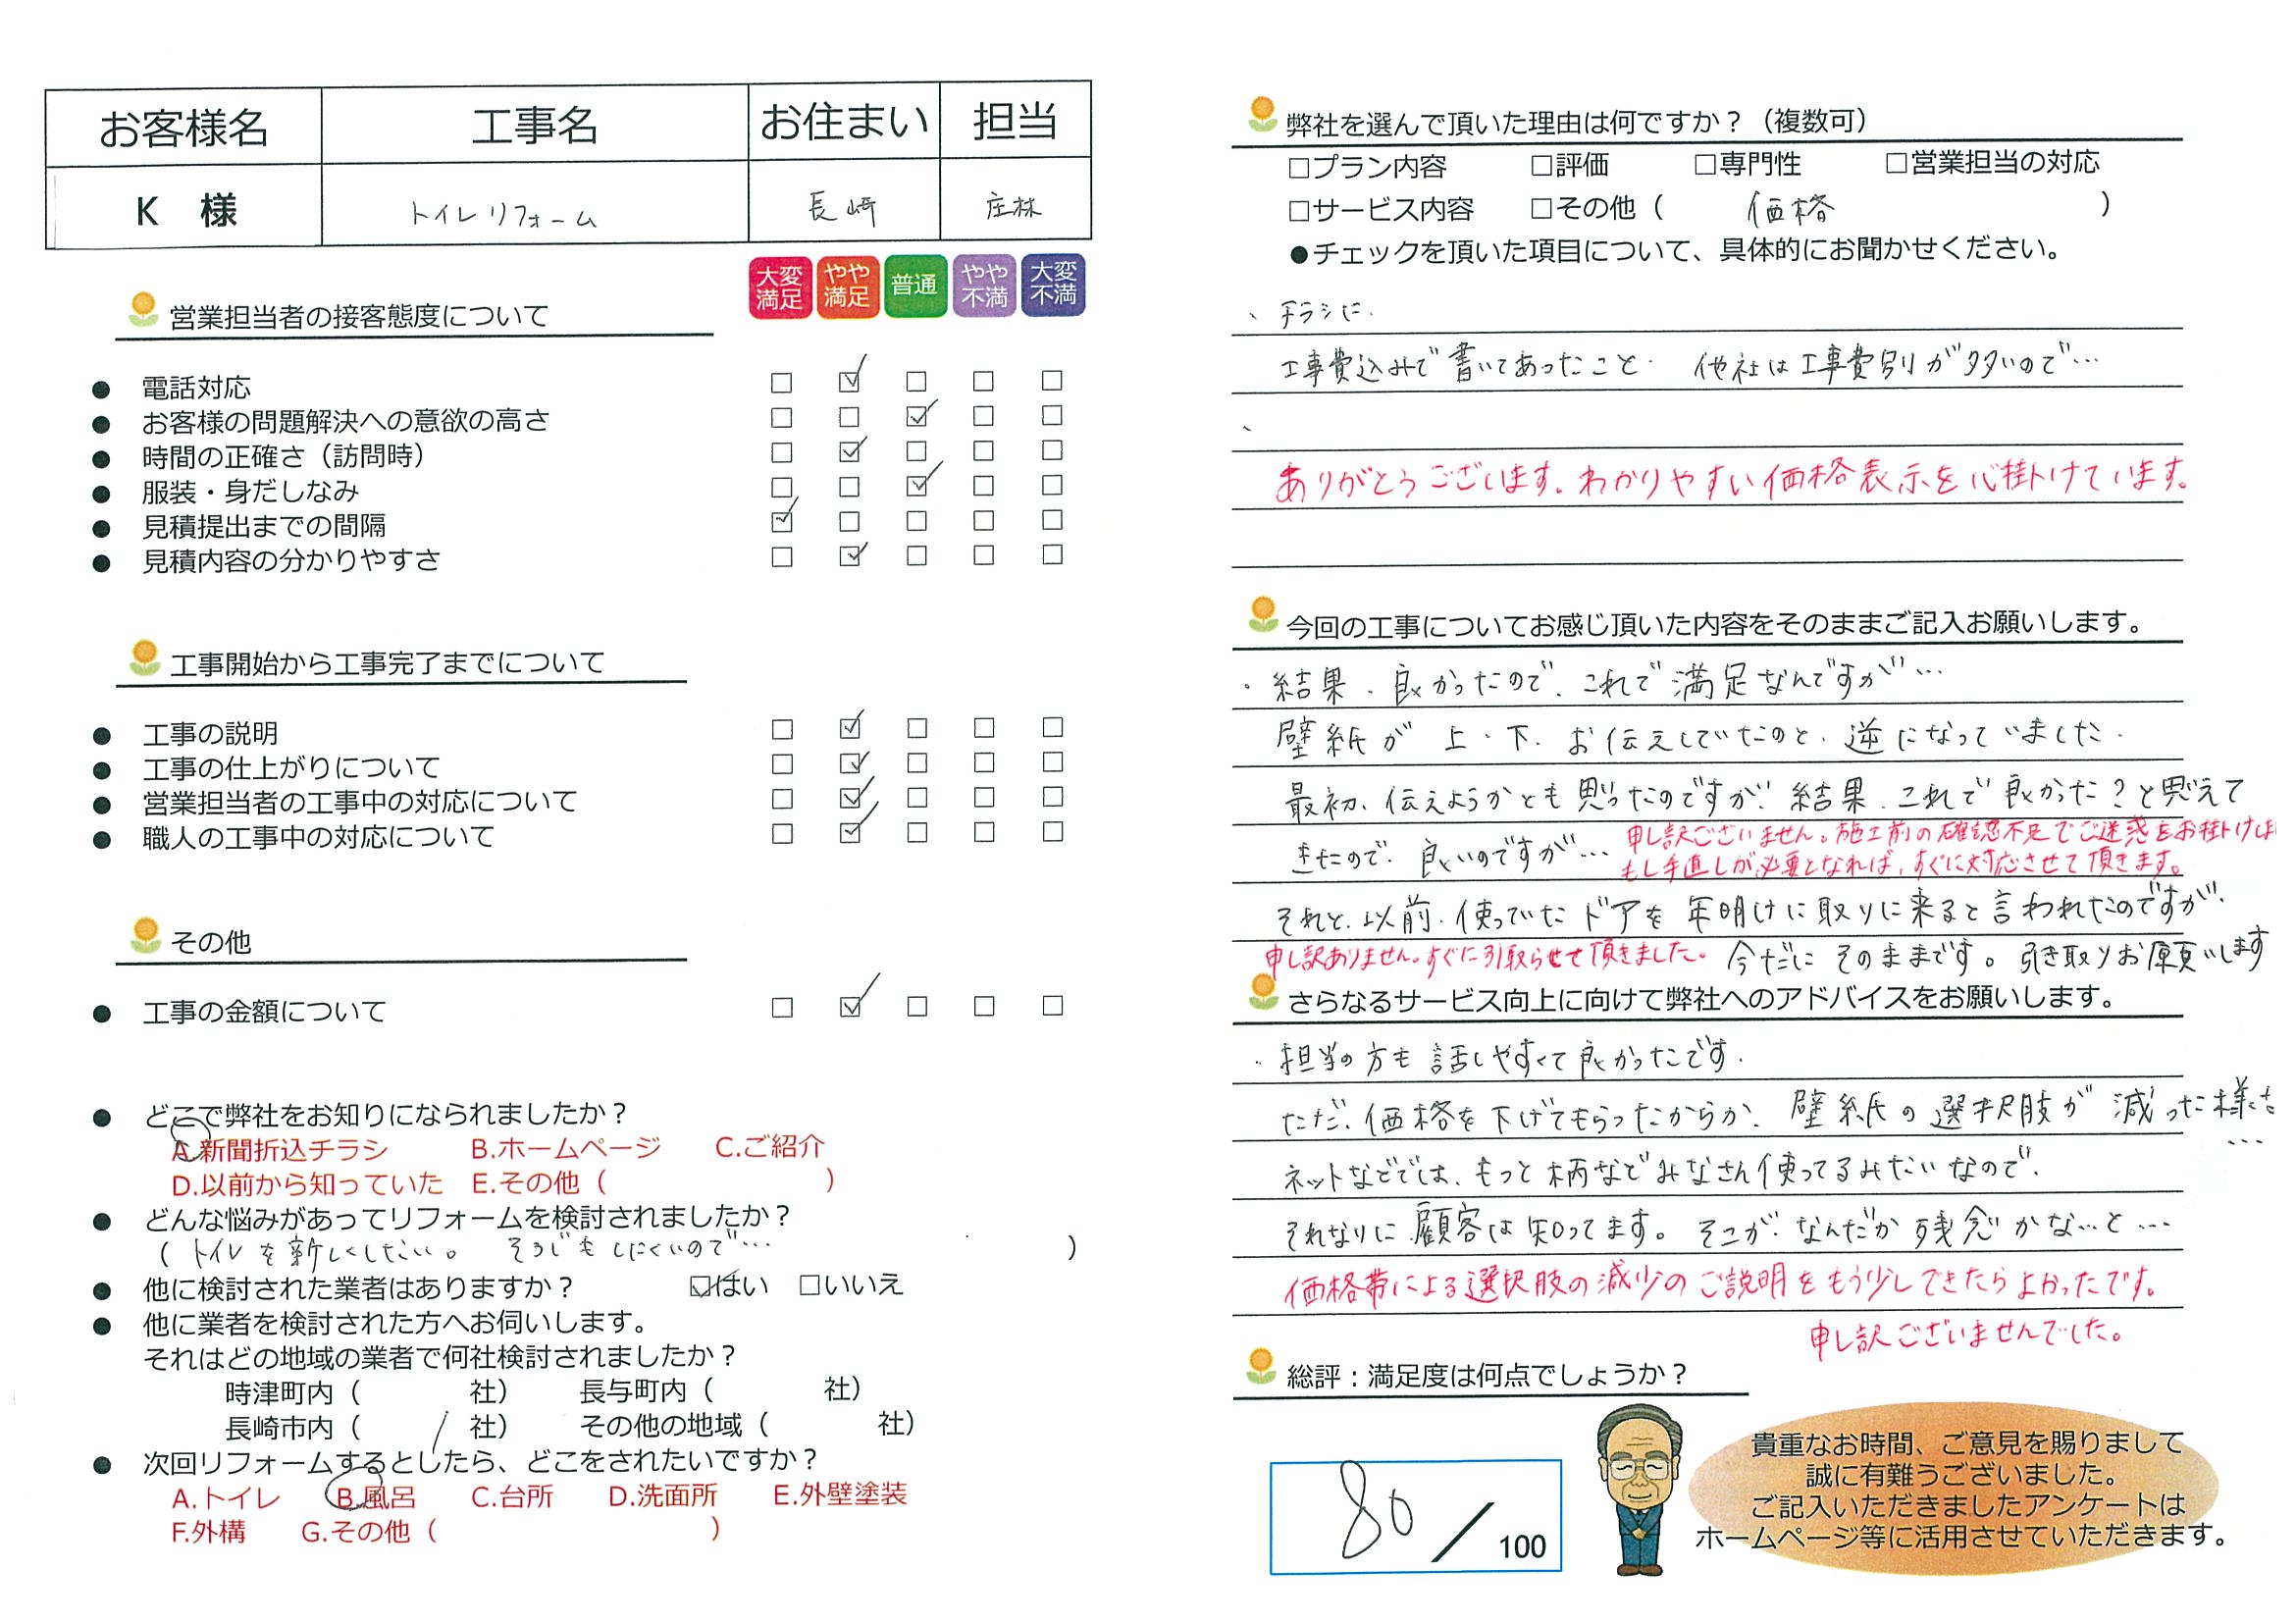 お客様名 工事名 お住まい 担当
K 様 トイレリフォーム 長崎 庄林
大変満足 やや満足 普通 やや不満 大変不満
営業担当者の接客態度について
● 電話対応 □ ☑ □ □ □
● お客様の問題解決への意欲の高さ □ □ ☑ □ □
● 時間の正確さ（訪問時） □ ☑ □ □ □
● 服装・身だしなみ □ □ ☑ □ □
● 見積提出までの間隔 ☑ □ □ □ □
● 見積内容の分かりやすさ □ ☑ □ □ □
工事開始から工事完了までについて
● 工事の説明 □ ☑ □ □ □
● 工事の仕上がりについて □ ☑ □ □ □
● 営業担当者の工事中の対応について □ ☑ □ □ □
● 職人の工事中の対応について □ ☑ □ □ □
その他
● 工事の金額について □ ☑ □ □ □
● どこで弊社をお知りになられましたか？
A.新聞折込チラシ B.ホームページ C.ご紹介
D.以前から知っていた E.その他（ ）
● どんな悩みがあってリフォームを検討されましたか？
（ トイレを新しくしたい。 そうじもしにくいので… ）
● 他に検討された業者はありますか？ ☑はい □いいえ
● 他に業者を検討された方へお伺いします。
それはどの地域の業者で何社検討されましたか？
時津町内（ 社） 長与町内（ 社）
長崎市内（ 1 社） その他の地域（ 社）
● 次回リフォームするとしたら、どこをされたいですか？
A.トイレ B.風呂 C.台所 D.洗面所 E.外壁塗装
F.外構 G.その他（ ）
弊社を選んで頂いた理由は何ですか？（複数可）
□プラン内容 □評価 □専門性 □営業担当の対応
□サービス内容 □その他（ 価格 ）
●チェックを頂いた項目について、具体的にお聞かせください。
、チラシに.
工事費込みで書いてあったこと. 他社は工事費別が多いので…
、
ありがとうございます。わかりやすい価格表示を心掛けています。
今回の工事についてお感じ頂いた内容をそのままご記入お願いします。
・結果、良かったので、これで満足なんですが…
壁紙が 上・下. お伝えしていたのと、逆になっていました.
最初、伝えようかとも思ったのですが、結果、これで良かった？と思えて
きたので、良いのですが…
申し訳ございません。施工前の確認不足でご迷惑をお掛けしま
もし手直しが必要となれば、すぐに対応させて頂きます。
それと、以前、使っていたドアを年明けに取りに来ると言われたのですが、
申し訳ありません。すぐに引取らせて頂きました。 今だにそのままです。引き取りお願いします
さらなるサービス向上に向けて弊社へのアドバイスをお願いします。
・担当の方も話しやすくて良かったです.
ただ、価格を下げてもらったからか、壁紙の選択肢が減った様な
…
ネットなどでは、もっと柄などみなさん使ってるみたいなので、
それなりに顧客は知ってます。そこが、なんだか残念かな…と…
価格帯による選択肢の減少のご説明をもう少しできたらよかったです。
申し訳ございませんでした。
総評：満足度は何点でしょうか？
80／100
貴重なお時間、ご意見を賜りまして
誠に有難うございました。
ご記入いただきましたアンケートは
ホームページ等に活用させていただきます。